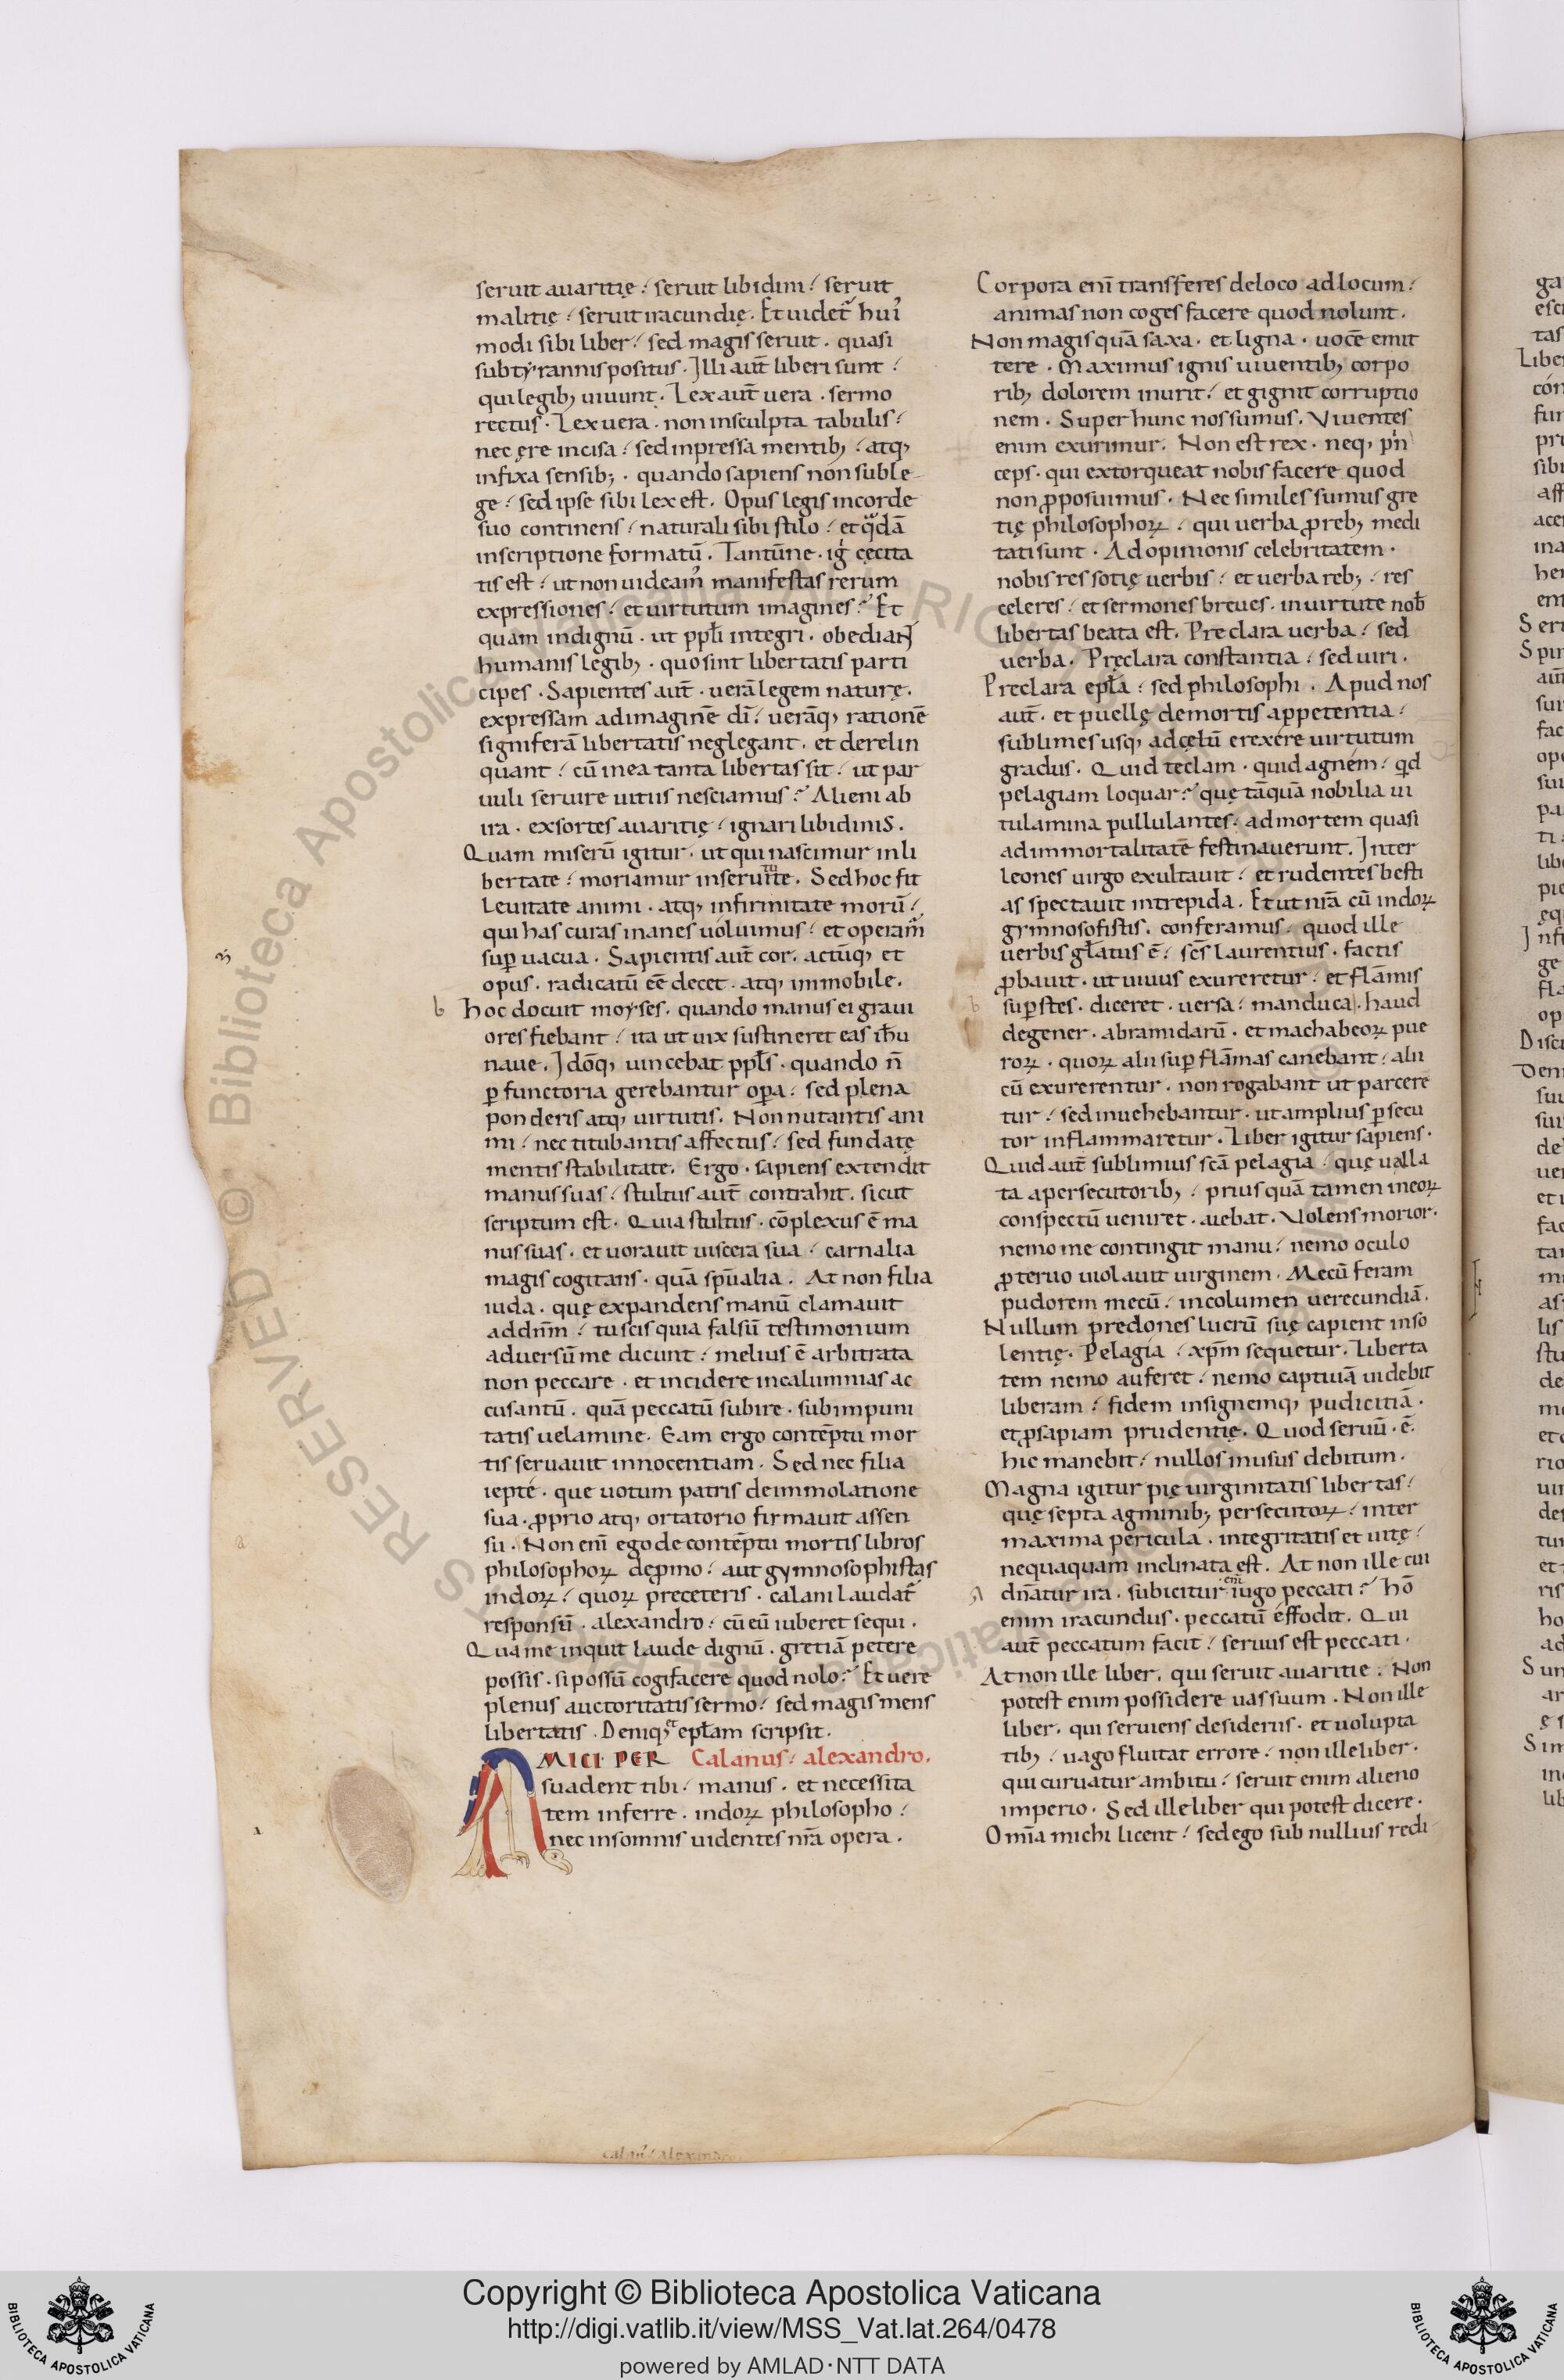 seruit auaritię? seruit libidini? seruit
malitię? seruit iracundię. Et uidet᷑ hui᾽
modi sibi liber? sed magis seruit. quasi
sub tyrannis positus. Illi aut̄ liberi sunt?
qui legib; uiuunt. Lex aut̄ uera. sermo
rectus. Lex uera. non insculpta tabulis?
nec ęre incisa? sed inpressa mentib;? atq;
infixa sensib;. quando sapiens non sub le
ge? sed ipse sibi lex est. Opus legis in corde
suo continens? naturali sibi stilo? et qͣdā
inscriptione formatū. Tantūne. igͥ cęcita
tis est? ut non uideam᾽ manifestas rerum
expressiones? et uirtutum imagines? Et
quam indignū. ut pp̄li integri. obediant
humanis legib;. quo sint libertatis parti
cipes. Sapientes aut̄. uerā legem naturę.
expressam ad imaginē dī? uerāq; rationē
signiferā libertatis neglegant. et derelin
quant? cū in ea tanta libertas sit? ut par
uuli seruire uitiis nesciamus? Alieni ab
ira. exsortes auaritię? ignari libidinis.
Quam miserū igitur. ut qui nascimur in li
bertate? moriamur in seruitute. Sed hoc fit
leuitate animi. atq; infirmitate morū?
qui has curas inanes uoluimus? et operam᾽
sup̱uacua. Sapientis aut̄ cor. actūq; et
opus. radicatū eē decet. atq; immobile.
b Hoc docuit moyses. quando manus ei graui
ores fiebant? ita ut uix sustineret eas ih̄u
naue. Idōq; uincebat pp̄ls. quando n̄
p̱functoria gerebantur op̱a? sed plena
ponderis atq; uirtutis. Non nutantis ani
mi? nec titubantis affectus? sed fundatę
mentis stabilitate. Ergo. sapiens extendit
manus suas? stultus aut̄ contrahit. sicut
scriptum est. Quia stultus. cōplexus ē ma
nus suas. et uorauit uiscera sua? carnalia
magis cogitans. quā sp̄ualia. At non filia
iuda. quę expandens manū clamauit
ad dn̄m? tu scis quia falsū testimonium
aduersū me dicunt? melius ē arbitrata
non peccare. et incidere in calumnias ac
cusantū. quā peccatū subire. sub impuni
tatis uelamine. Eam ergo contēptu mor
tis seruauit innocentiam. Sed nec filia
iepte. que uotum patris de immolatione
sua. ꝓprio atq; ortatorio firmauit assen
su. Non enī ego de contēptu mortis libros
philosophoꝝ dep̱mo? aut gymnosophistas
indoꝝ? quoꝝ pre ceteris. calani laudat᷑
responsū. alexandro? cū eū iuberet sequi.
Qua me inquit laude dignū. gretiā petere
possis. si possū cogi facere quod nolo? Et uere
plenus auctoritatis sermo? sed magis mens
libertatis. Deniq; et ep̄łam scripsit.
AMICI PER Calanus? alexandro.
suadent tibi? manus. et necessita
tem inferre. indoꝝ philosopho?
nec in somnis uidentes nr̄a opera.
Corpora enī transferes de loco ad locum?
animas non coges facere quod nolunt.
Non magis quā saxa. et ligna. uocē emit
tere. Maximus ignis uiuentib; corpo
rib; dolorem inurit? et gignit corruptio
nem. Super hunc nos sumus. Viuentes
enim exurimur. Non est rex. neq; pͥn
ceps. qui extorqueat nobis facere quod
non ꝓposuimus. Nec similes sumus gre
tię philosophoꝝ? qui uerba ꝓ reb; medi
tati sunt. Ad opinionis celebritatem.
nobis res sotię uerbis? et uerba reb;? res
celeres? et sermones breues. in uirtute nob̄
libertas beata est. Preclara uerba? sed
uerba. Pręclara constantia? sed uiri.
Preclara ep̄ła? sed philosophi. Apud nos
aut̄. et puellę de mortis appetentia?
sublimes usq; ad cęlū erexere uirtutum
gradus. Quid teclam. quid agnem? qͥd
pelagiam loquar? quę tāquā nobilia ui
tulamina pullulantes? ad mortem quasi
ad immortalitatē festinauerunt. Inter
leones uirgo exultauit? et rudentes besti
as spectauit intrepida. Et ut nr̄a cū indoꝝ
gymnosofistis. conferamus? quod ille
uerbis głatus ē? sc̄s laurentius. factis
ꝓbauit. ut uiuus exureretur? et flāmis
sup̱stes. diceret. uersa? manduca. haud
degener. abramidarū. et machabeoꝝ pue
roꝝ. quoꝝ alii sup̱ flāmas canebant? alii
cū exurerentur. non rogabant ut parcere
tur? sed inuehebantur. ut amplius p̱secu
tor inflammaretur. Liber igitur sapiens.
Quid aut̄ sublimius sc̄a pelagia? quę ualla
ta a persecutorib;? prius quā tamen in eoꝝ
conspectū ueniret. aiebat. Volens morior.
nemo me contingit manu? nemo oculo
ꝓteruo uiolauit uirginem. Mecū feram
pudorem mecū? incolumen uerecundiā.
Nullum predones lucrū suę capient inso
lentię. Pelagia? xp̄m sequetur. Liberta
tem nemo auferet? nemo captiuā uidebit
liberam? fidem insignemq; pudicitiā.
et ꝓsapiam prudentię. Quod seruū. ē.
hic manebit? nullos in usus debitum.
Magna igitur pię uirginitatis libertas?
quę septa agminib; persecutoꝝ? inter
maxima pericula. integritatis et uitę?
nequaquam inclinata est. At non ille cui
dn̄atur ira. subicitur em̄ iugo peccati? Hō
enim iracundus. peccatū effodit. Qui
aut̄ peccatum facit? seruus est peccati.
At non ille liber. qui seruit auaritie. Non
potest enim possidere uas suum. Non ille
liber. qui seruiens desideriis. et uolupta
tib;? uago fluitat errore? non ille liber.
qui curuatur ambitu? seruit enim alieno
imperio. Sed ille liber qui potest dicere.
Omīa michi licent? sed ego sub nullius redi
Copyright © Biblioteca Apostolica Vaticana
http://digi.vatlib.it/view/MSS_Vat.lat.264/0478
powered by AMLAD·NTT DATA